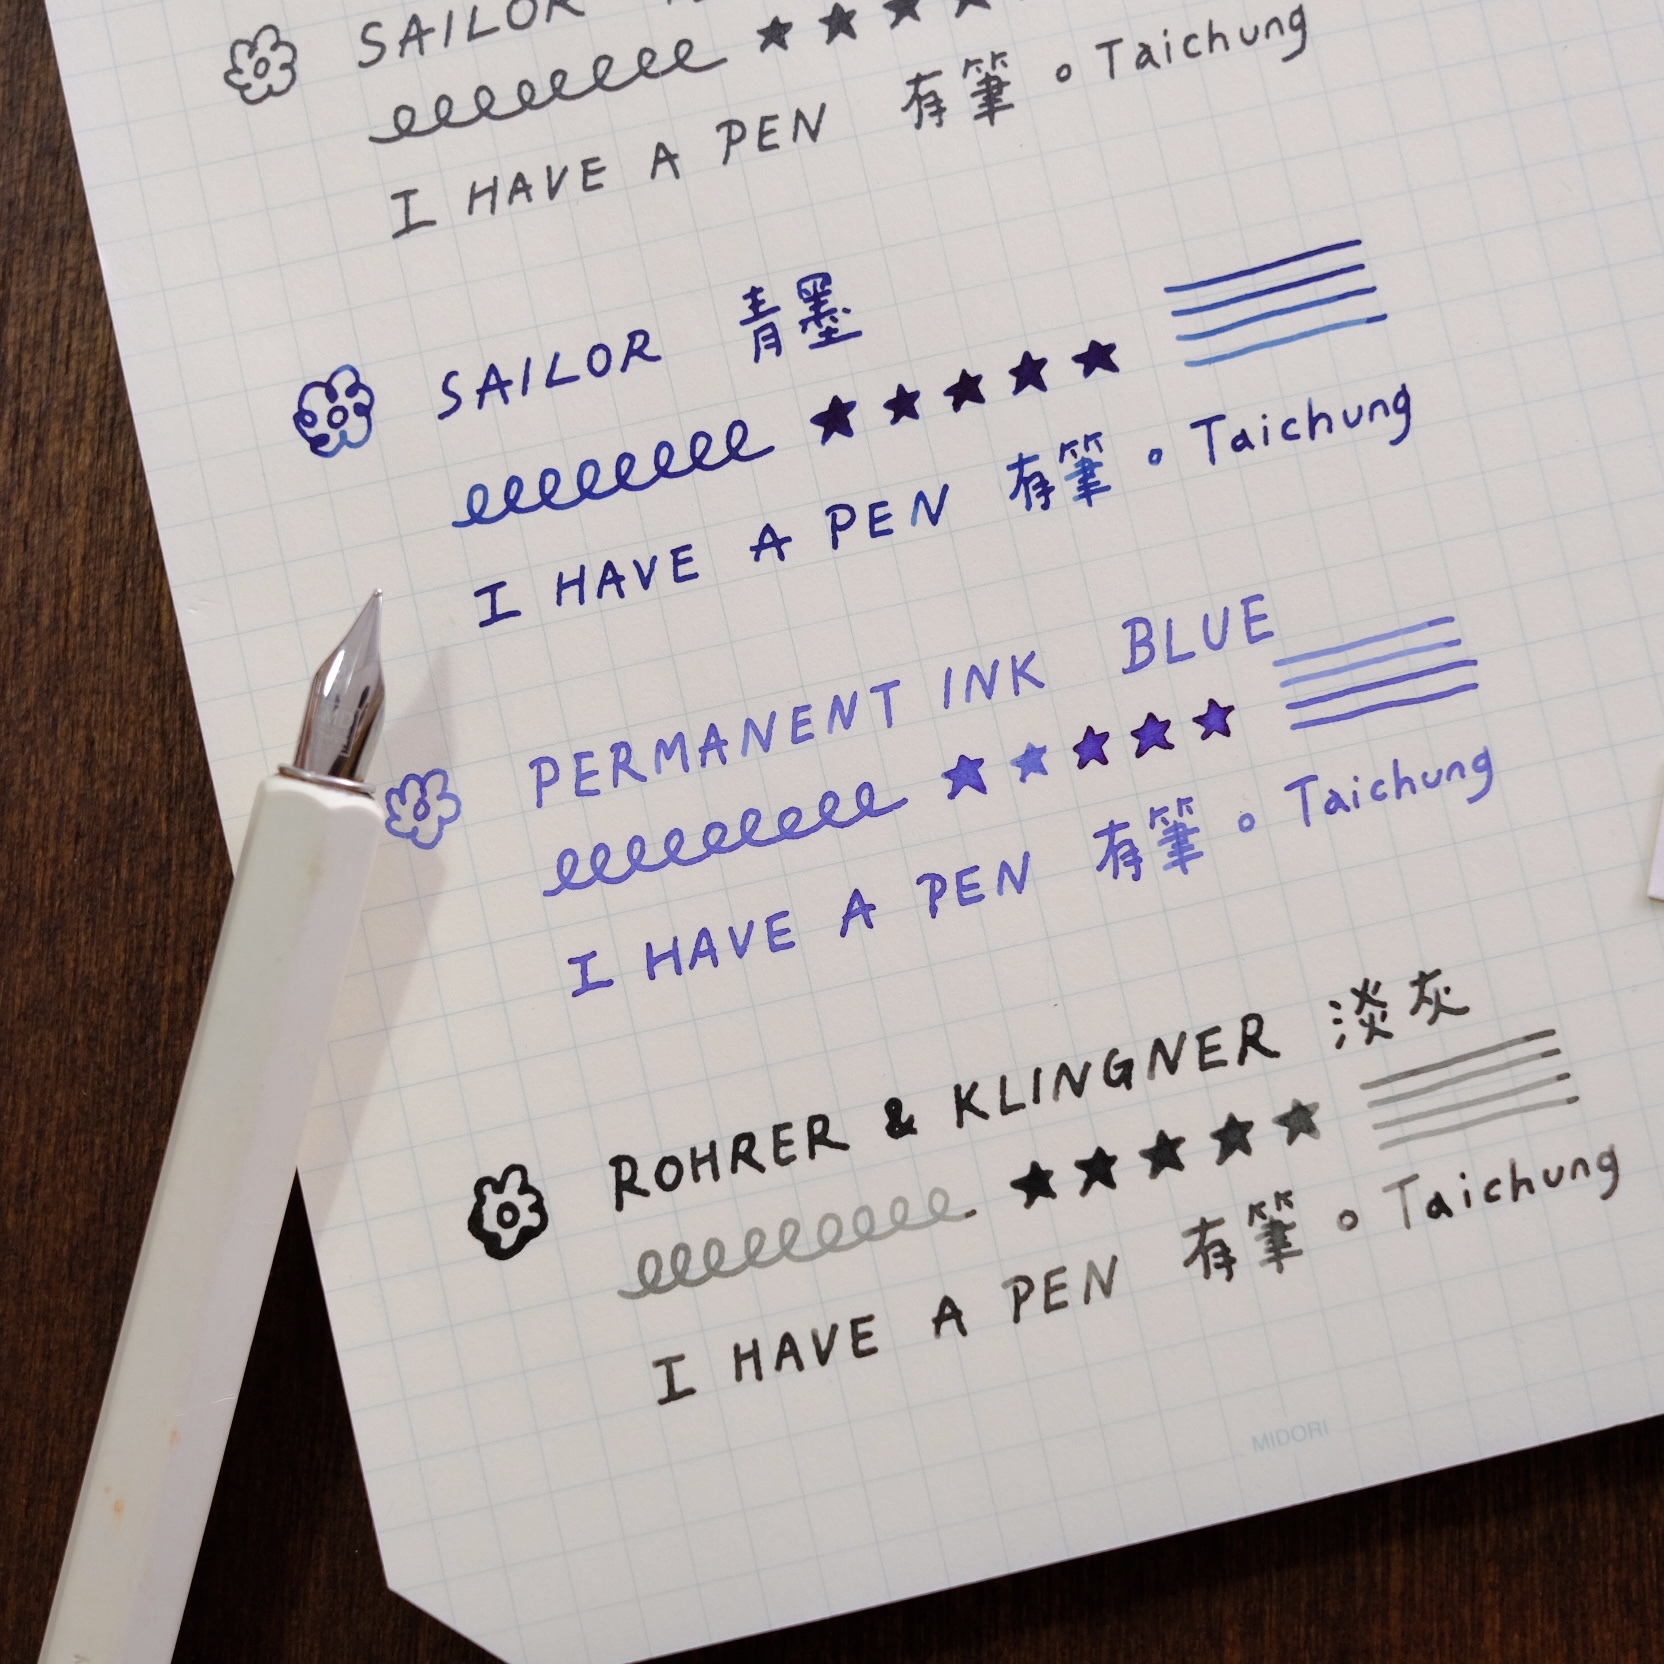 SAILOR
I HAVE A PEN 有筆。Taichung
SAILOR 青墨
I HAVE A PEN 有筆。Taichung
PERMANENT INK BLUE
I HAVE A PEN 有筆。Taichung
ROHRER & KLINGNER 淡灰
I HAVE A PEN 有筆。Taichung
MIDORI